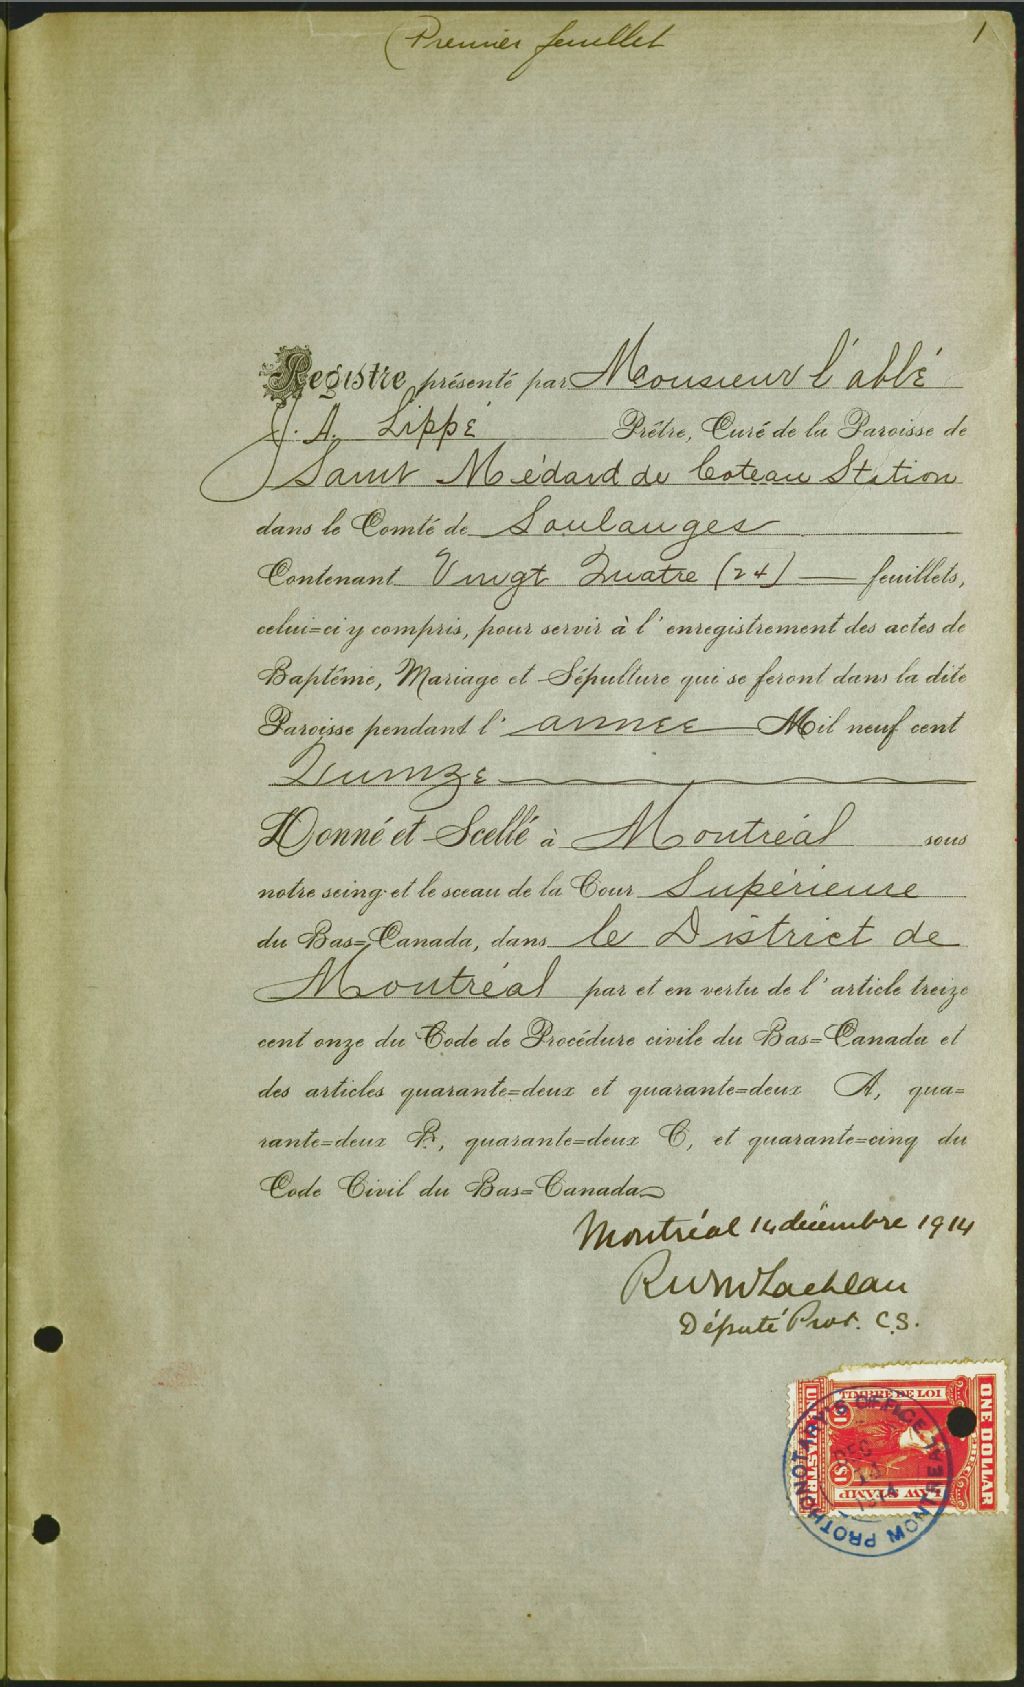 Premier feuillet
1
Registre présenté par Monsieur l'abbé
J. A. Lippé Prêtre, Curé de la Paroisse de
Saint Médard de Coteau Station
dans le Comté de Soulanges
Contenant Vingt Quatre (24) feuillets,
celui=ci y compris, pour servir à l'enregistrement des actes de
Baptême, Mariage et Sépulture qui se feront dans la dite
Paroisse pendant l'année Mil neuf cent
Quinze
Donné et Scellé à Montréal sous
notre seing et le sceau de la Cour Supérieure
du Bas=Canada, dans le District de
Montréal par et en vertu de l'article treize
cent onze du Code de Procédure civile du Bas=Canada et
des articles quarante=deux et quarante=deux A, qua=
rante=deux B, quarante=deux C, et quarante=cinq du
Code Civil du Bas=Canada
Montréal 14 décembre 1914
Député Prot. C.S.
TIMBRE DE LOI
ONE DOLLAR
UNE PIASTRE
LAW STAMP
$1
$1
PROTHONOTARY'S OFFICE
MONTREAL
DEC
14
1914